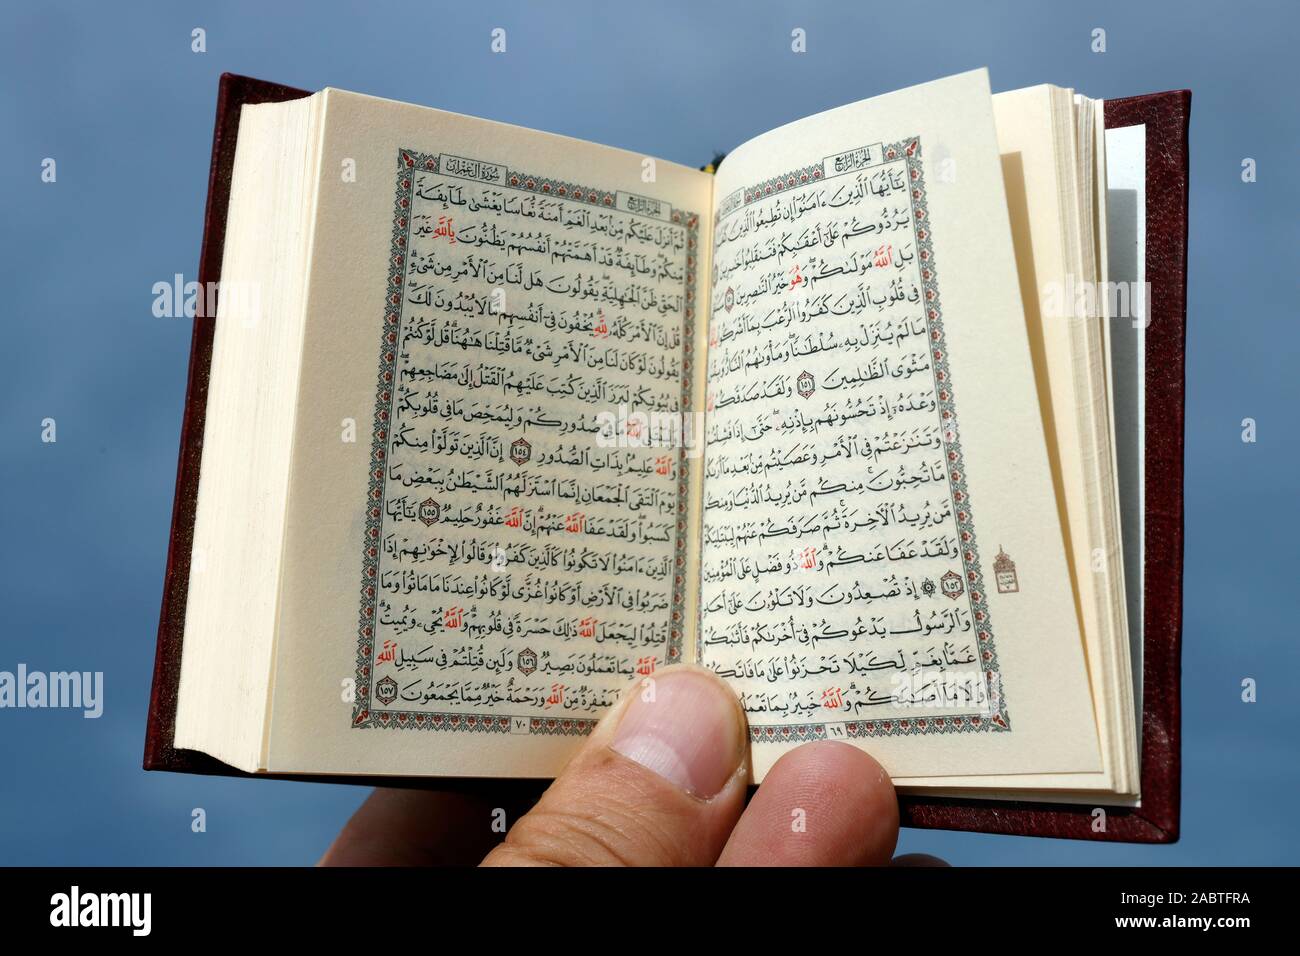 الجزء الرابع
يَٰٓأَيُّهَا ٱلَّذِينَ ءَامَنُوٓاْ إِن تُطِيعُواْ ٱلَّذِينَ
يَرُدُّوكُمْ عَلَىٰٓ أَعْقَٰبِكُمْ فَتَنقَلِبُواْ خَٰسِرِينَ
بَلِ ٱللَّهُ مَوْلَىٰكُمْ ۖ وَهُوَ خَيْرُ ٱلنَّٰصِرِينَ
فِى قُلُوبِ ٱلَّذِينَ كَفَرُواْ ٱلرُّعْبَ بِمَآ أَشْرَكُواْ
مَا لَمْ يُنَزِّلْ بِهِۦ سُلْطَٰنًا ۖ وَمَأْوَىٰهُمُ ٱلنَّارُ ۚ وَبِئْسَ
مَثْوَى ٱلظَّٰلِمِينَ ١٥١ وَلَقَدْ صَدَقَكُمُ
وَعْدَهُۥٓ إِذْ تَحُسُّونَهُم بِإِذْنِهِۦ ۖ حَتَّىٰٓ إِذَا فَشِلْتُمْ
وَتَنَٰزَعْتُمْ فِى ٱلْأَمْرِ وَعَصَيْتُم مِّنۢ بَعْدِ مَآ أَرَىٰكُم
مَّا تُحِبُّونَ ۚ مِنكُم مَّن يُرِيدُ ٱلدُّنْيَا وَمِنكُم
مَّن يُرِيدُ ٱلْأَخِرَةَ ۚ ثُمَّ صَرَفَكُمْ عَنْهُمْ لِيَبْتَلِيَكُمْ ۖ
وَلَقَدْ عَفَا عَنكُمْ ۗ وَٱللَّهُ ذُو فَضْلٍ عَلَى ٱلْمُؤْمِنِينَ
١٥٢ ۞ إِذْ تُصْعِدُونَ وَلَا تَلْوُۥنَ عَلَىٰٓ أَحَدٍ
وَٱلرَّسُولُ يَدْعُوكُمْ فِىٓ أُخْرَىٰكُمْ فَأَثَٰبَكُمْ
غَمًّۢا بِغَمٍّ لِّكَيْلَا تَحْزَنُواْ عَلَىٰ مَا فَاتَكُمْ
وَلَا مَآ أَصَٰبَكُمْ ۗ وَٱللَّهُ خَبِيرٌۢ بِمَا تَعْمَلُونَ
٦٩
الجزء الرابع
سورة آل عمران
ثُمَّ أَنزَلَ عَلَيْكُم مِّنۢ بَعْدِ ٱلْغَمِّ أَمَنَةً نُّعَاسًا يَغْشَىٰ طَآئِفَةً
مِّنكُمْ ۖ وَطَآئِفَةٌ قَدْ أَهَمَّتْهُمْ أَنفُسُهُمْ يَظُنُّونَ بِٱللَّهِ غَيْرَ
ٱلْحَقِّ ظَنَّ ٱلْجَٰهِلِيَّةِ ۖ يَقُولُونَ هَل لَّنَا مِنَ ٱلْأَمْرِ مِن شَىْءٍ ۗ
قُلْ إِنَّ ٱلْأَمْرَ كُلَّهُۥ لِلَّهِ ۗ يُخْفُونَ فِىٓ أَنفُسِهِم مَّا لَا يُبْدُونَ لَكَ ۖ
يَقُولُونَ لَوْ كَانَ لَنَا مِنَ ٱلْأَمْرِ شَىْءٌ مَّا قُتِلْنَا هَٰهُنَا ۗ قُل لَّوْ كُنتُمْ
فِى بُيُوتِكُمْ لَبَرَزَ ٱلَّذِينَ كُتِبَ عَلَيْهِمُ ٱلْقَتْلُ إِلَىٰ مَضَاجِعِهِمْ ۖ
وَلِيَبْتَلِىَ ٱللَّهُ مَا فِى صُدُورِكُمْ وَلِيُمَحِّصَ مَا فِى قُلُوبِكُمْ ۗ
وَٱللَّهُ عَلِيمٌۢ بِذَاتِ ٱلصُّدُورِ ١٥٤ إِنَّ ٱلَّذِينَ تَوَلَّوْاْ مِنكُمْ
يَوْمَ ٱلْتَقَى ٱلْجَمْعَانِ إِنَّمَا ٱسْتَزَلَّهُمُ ٱلشَّيْطَٰنُ بِبَعْضِ مَا
كَسَبُواْ ۖ وَلَقَدْ عَفَا ٱللَّهُ عَنْهُمْ ۗ إِنَّ ٱللَّهَ غَفُورٌ حَلِيمٌ ١٥٥ يَٰٓأَيُّهَا
ٱلَّذِينَ ءَامَنُواْ لَا تَكُونُواْ كَٱلَّذِينَ كَفَرُواْ وَقَالُواْ لِإِخْوَٰنِهِمْ إِذَا
ضَرَبُواْ فِى ٱلْأَرْضِ أَوْ كَانُواْ غُزًّى لَّوْ كَانُواْ عِندَنَا مَا مَاتُواْ وَمَا
قُتِلُواْ لِيَجْعَلَ ٱللَّهُ ذَٰلِكَ حَسْرَةً فِى قُلُوبِهِمْ ۗ وَٱللَّهُ يُحْىِۦ وَيُمِيتُ ۗ
وَٱللَّهُ بِمَا تَعْمَلُونَ بَصِيرٌ ١٥٦ وَلَئِن قُتِلْتُمْ فِى سَبِيلِ ٱللَّهِ
لَمَغْفِرَةٌ مِّنَ ٱللَّهِ وَرَحْمَةٌ خَيْرٌ مِّمَّا يَجْمَعُونَ ١٥٧
٧٠
alamy
Image ID: 2ABTFRA
www.alamy.com